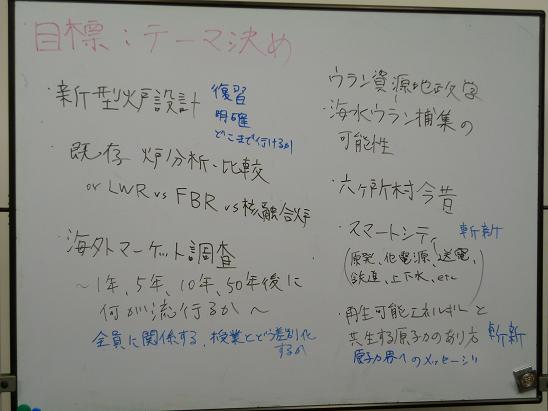 目標:テーマ決め
・新型炉設計
復習
明確
どこまで行けるか
・既存 炉分析・比較
or LWR vs FBR vs 核融合炉
・海外マーケット調査
~1年、5年、10年、50年後に
何が流行るか~
全員に関係する、授業とどう差別化
するか
ウラン資源地政学
・海水ウラン捕集の
可能性
・六ヶ所村今昔
・スマートシティ 斬新
(原発、他電源、送電、
鉄道、上下水、etc)
・再生可能エネルギーと
共生する原子力のあり方 斬新
原子力界へのメッセージ!!